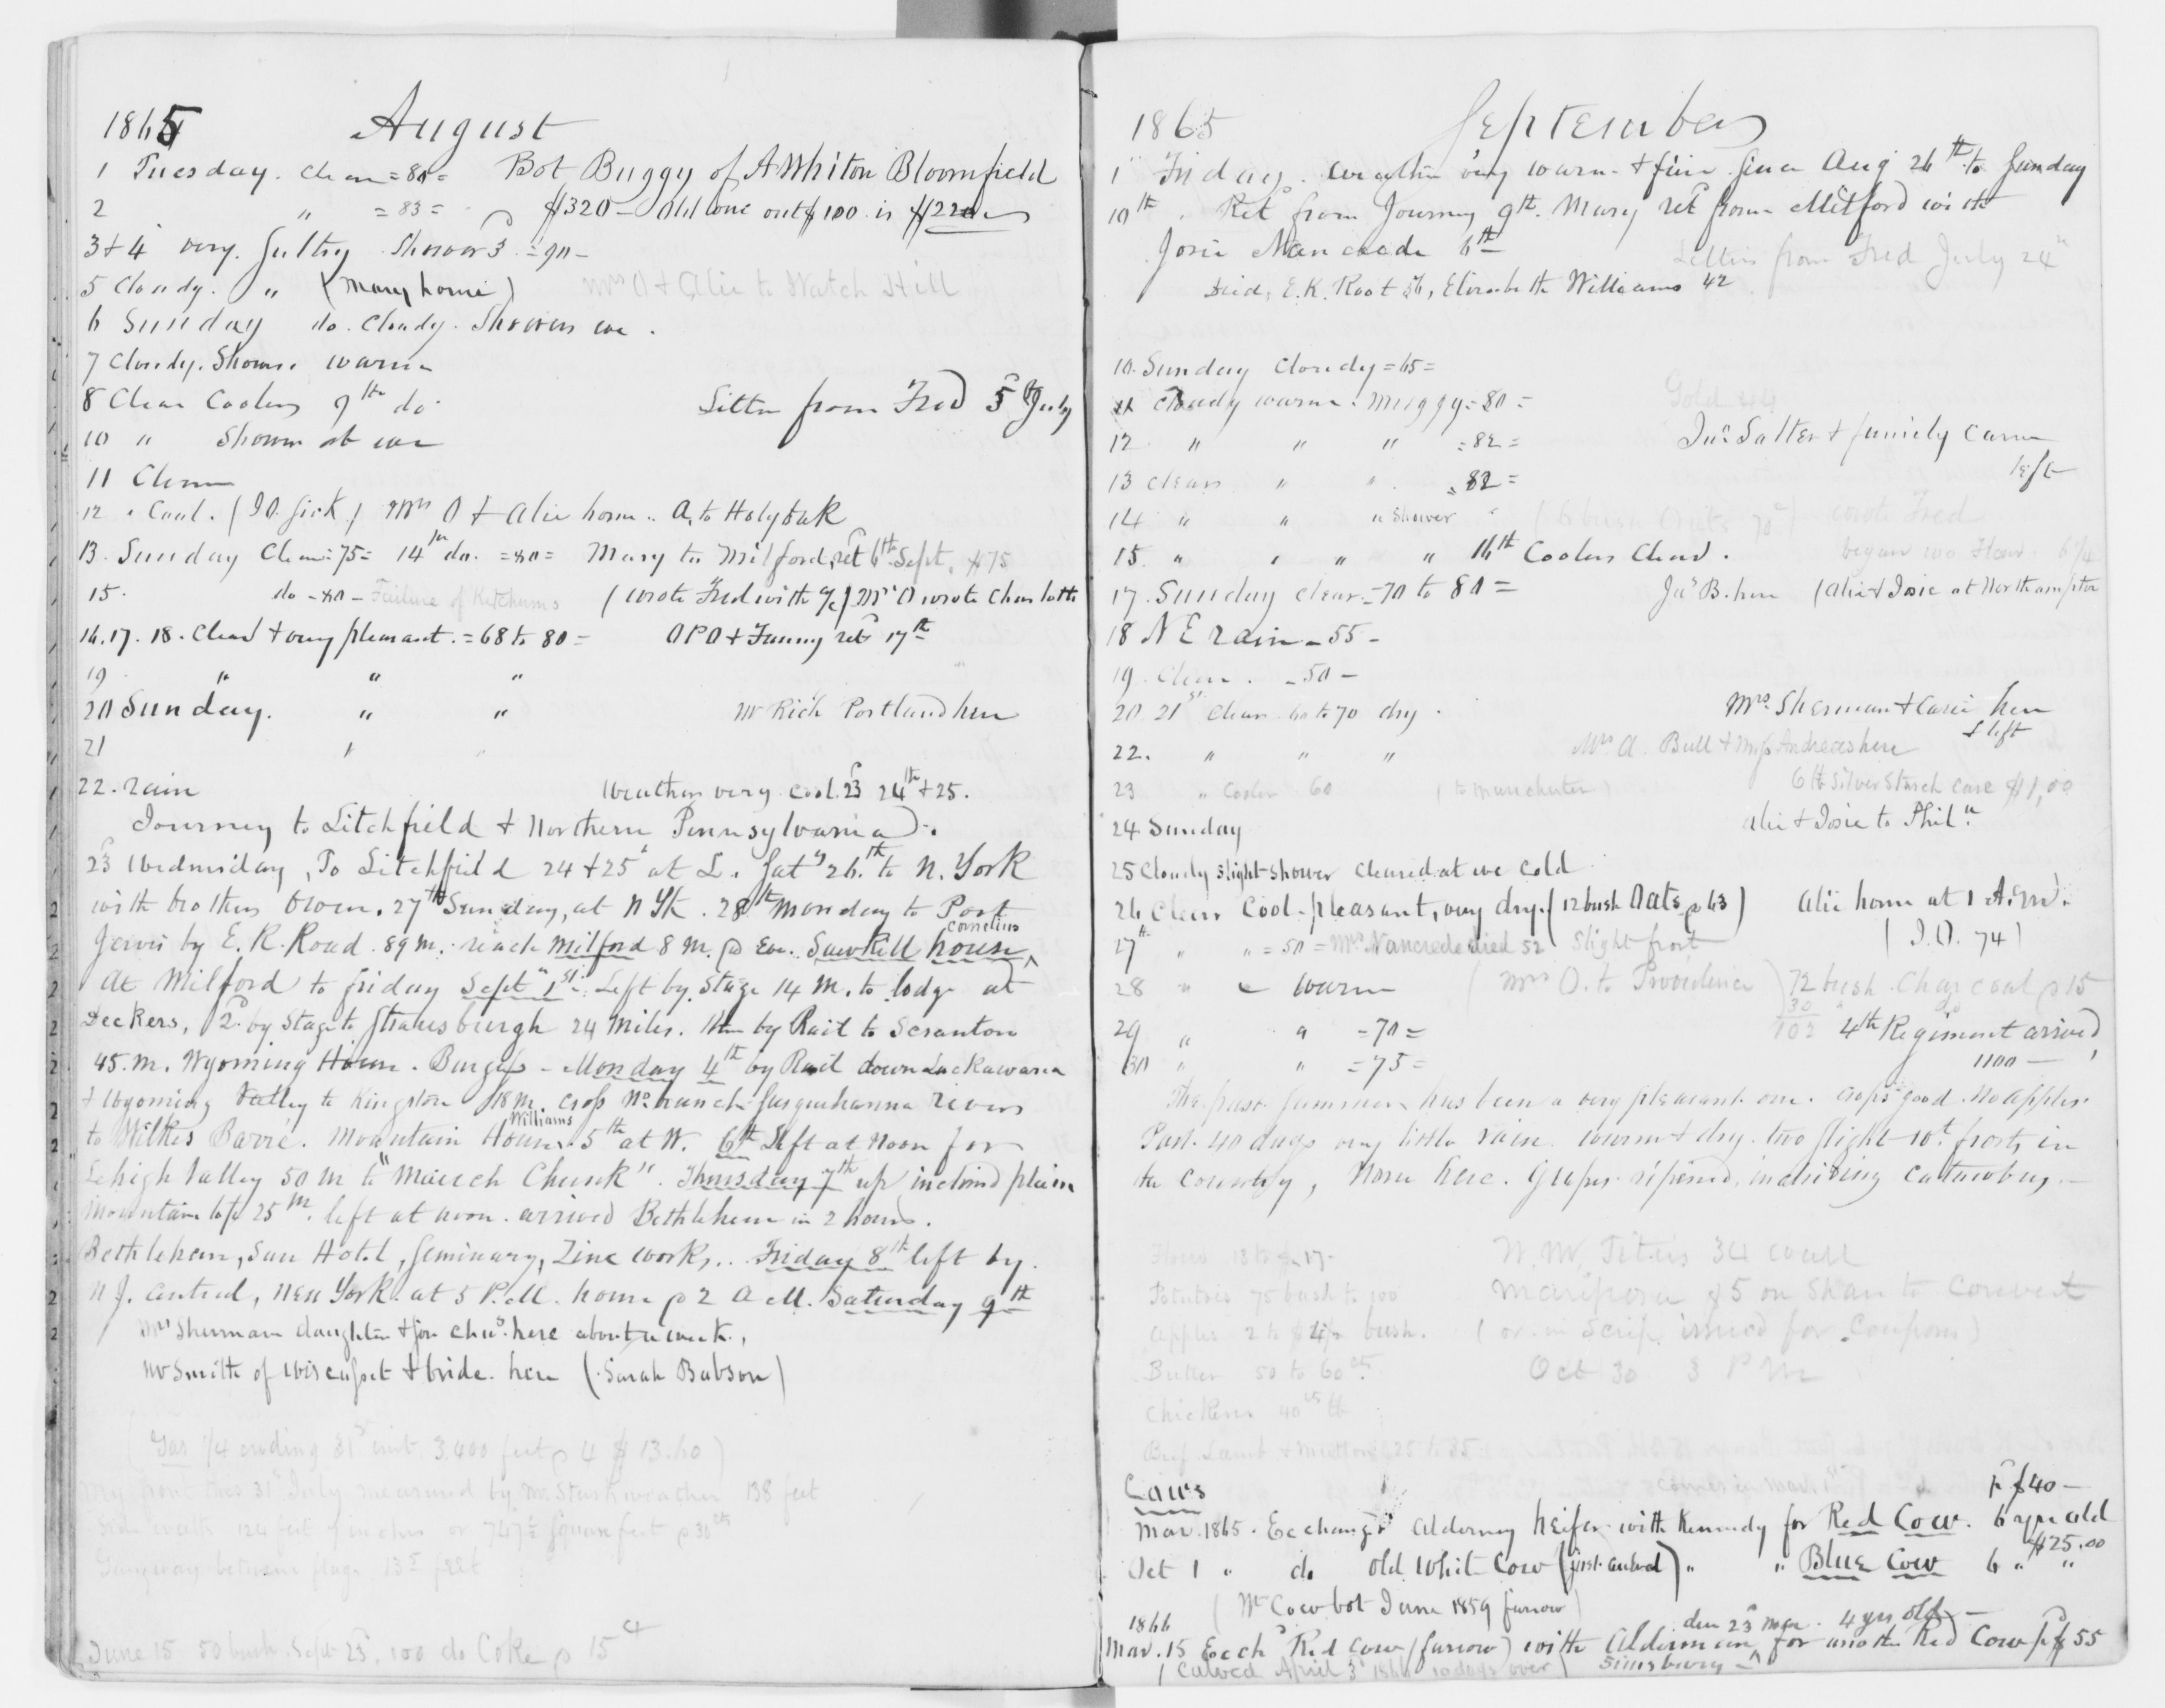 1865 August
1 Tuesday. Clear = 80 = Bot Buggy of A Whiton Bloomfield
2 " = 83 = $320 - Old one out $100 is $220
3 & 4 very Sultry Showers = 90 -
5 Cloudy. " (Mary home) Mrs O & Alie to Watch Hill
6 Sunday do. Cloudy. Showers eve.
7 Cloudy. Shower warm
8 Clear Cooler 9th do. Letter from Fred 5th July
10 " Shower at eve
11 Clear
12 " Cool. (I.O. sick) Mrs O & Alie home. A. to Holyoak
13. Sunday Clear = 75 = 14th do. = 80 = Mary to Milford, ret 6th Sept. $75
15. do - 80 - Failure of Ketchums (wrote Fred with ) Mrs O wrote Charlotte
16. 17. 18. Clear & very pleasant. = 68 to 80 = O P O & Fanny retd 17th
19 " " "
20 Sunday. " " Mr Rich Portland here
21 "
22. rain Weather very cool 23d 24th & 25.
Journey to Litchfield & Northern Pennsylvania.
23d Wednesday, To Litchfield 24 & 25th at L. Saty 26th to N. York
with brother Owen. 27th Sunday, at N Yk. 28th Monday to Port
Jervis by E. R. Road 89 m. reach Milford 8 m. p Eve. Sawkill house, Cornelius
At Milford to friday Sept 1st. Left by Stage 14 M. to lodge at
Deckers, 2d by Stage to Strausburgh 24 Miles. then by Rail to Scranton
45. m. Wyoming House. Burgess - Monday 4th by Rail down Lackawana
& Wyoming Valley to Kingston 18 m. cross No. branch Susquehanna river
to Wilkes Barre. Mountain House. Williams 5th at W. 6th Left at Noon for
Lehigh Valley 50 m to "Mauch Chunk". Thursday 7th up inclined plain
Mountain top 25 m. left at noon. arrived Bethlehem in 2 hours.
Bethlehem, Sun Hotel, Seminary, Zinc works,.. Friday 8th left by
N J. Central, New York at 5 P.M. home p 2 A M. Saturday 9th
Mrs Sherman daughter & son Chas. here about a week.,
Mr Smith of Wiscasset & bride here (Sarah Babson)
(Gas 1/4 ending 31st inst. 3.400 feet p 4 $ 13.60)
My front this 31st July measured by Mr. Starkweather 138 feet
Side walk 124 feet inches or 747 Square feet p 30 cts
Gangway between flags 13 feet
June 15 50 bush. Sept 23d, 100 do Coke p 15 ct
1865 September
1 Friday. weather very warm & fine since Aug 26th to Sunday
10th. Retd from Journey 9th. Mary retd from Milford with
Josie Nancrede 6th Letter from Fred July 24th
Died, E. K. Root 56, Elizabeth Williams 42
10. Sunday Cloudy = 65 =
11 Cloudy warm. Muggy = 80 = Gold
12 " " " = 82 = Jno. Salter & family came
13 clear " " = 82 = left
14 " " " Shower (6 bush Oats 70c) wrote Fred
15 " " " " 16th Cooler Clear. began Flour
17. Sunday clear. = 70 to 80 = Jas B. here (Alie & Josie at Northampton
18 N E rain - 55 -
19. Clear. - 50 -
20 21st Clear 60 to 70 dry. Mrs. Sherman & Carie here
22. " " " Mrs A. Bull & Miss Andreas here & left
23 " Cooler 60 (to Manchester) 6 lb Silver Starch case $1,00
24 Sunday Alie & Josie to Phila.
25 Cloudy slight shower cleared at eve cold
26 Clear Cool. pleasant, very dry. (12 bush Oats p 63) Alie home at 1 A.M.
27th " " = 50 = Mrs Nancrede died 52 Slight frost (I.O. 74)
28 " " warm (Mrs O. to Providence) 72 bush. Charcoal p 15
30
29 " " = 70 = 102 4th Regiment arrived
30 " " = 75 = 1100 -
The past summer has been a very pleasant one. Crops good. No apples.
Past 40 days very little rain warm & dry. two slight frosts in
the country, None here. Grapes ripened, including Catawbas.
Flour 13 to $17 - N. W. Titus 34 wall
Potatoes 75 bush to 100 Mariposa $5 on Share to Convert
Apples 2 to bush. (or in Scrip issued for Coupons)
Butter 50 to 60 cts. Oct 30 3 P M
Chickens 40 cts lb
Beef Lamb & Mutton 25 to 35
Cows $40 -
Mar. 1865. Exchanged Alderney heifer with Kennedy for Red Cow. 6 yrs old
Oct 1 " do Old White Cow " " Blue Cow 6 " " $25.00
(Wt Cow bot June 1859 farrow)
1866 due 23d Mar. 4 yrs old -
Mar. 15 Exchd Red Cow (farrow) with Alderman for another Red Cow pd $55
(Calved April 3d 1866 10 days over) Simsbury